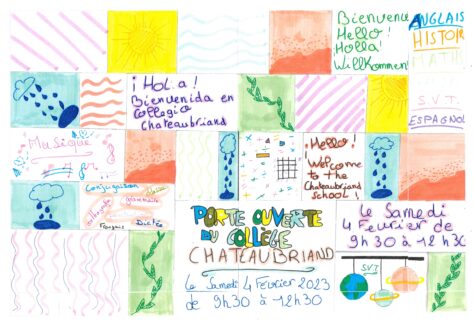 Bienvenue
Hello!
Holla!
Willkommen
ANGLAIS
HISTOIR
MATH
¡Hola!
Bienvenida en
Collegio
Chateaubriand
S.V.T.
ESPAGNOL
Musique
¡Hello!
Welcome
to the
Chateaubriand
School!
Conjugaison
grammaire
Français
Dictée
PORTE OUVERTE
DU COLLÈGE
CHATEAUBRIAND
le Samedi 4 Février 2023
de 9h30 à 12h30
le Samedi
4 Février de
9h30 à 12h30
S.V.T.